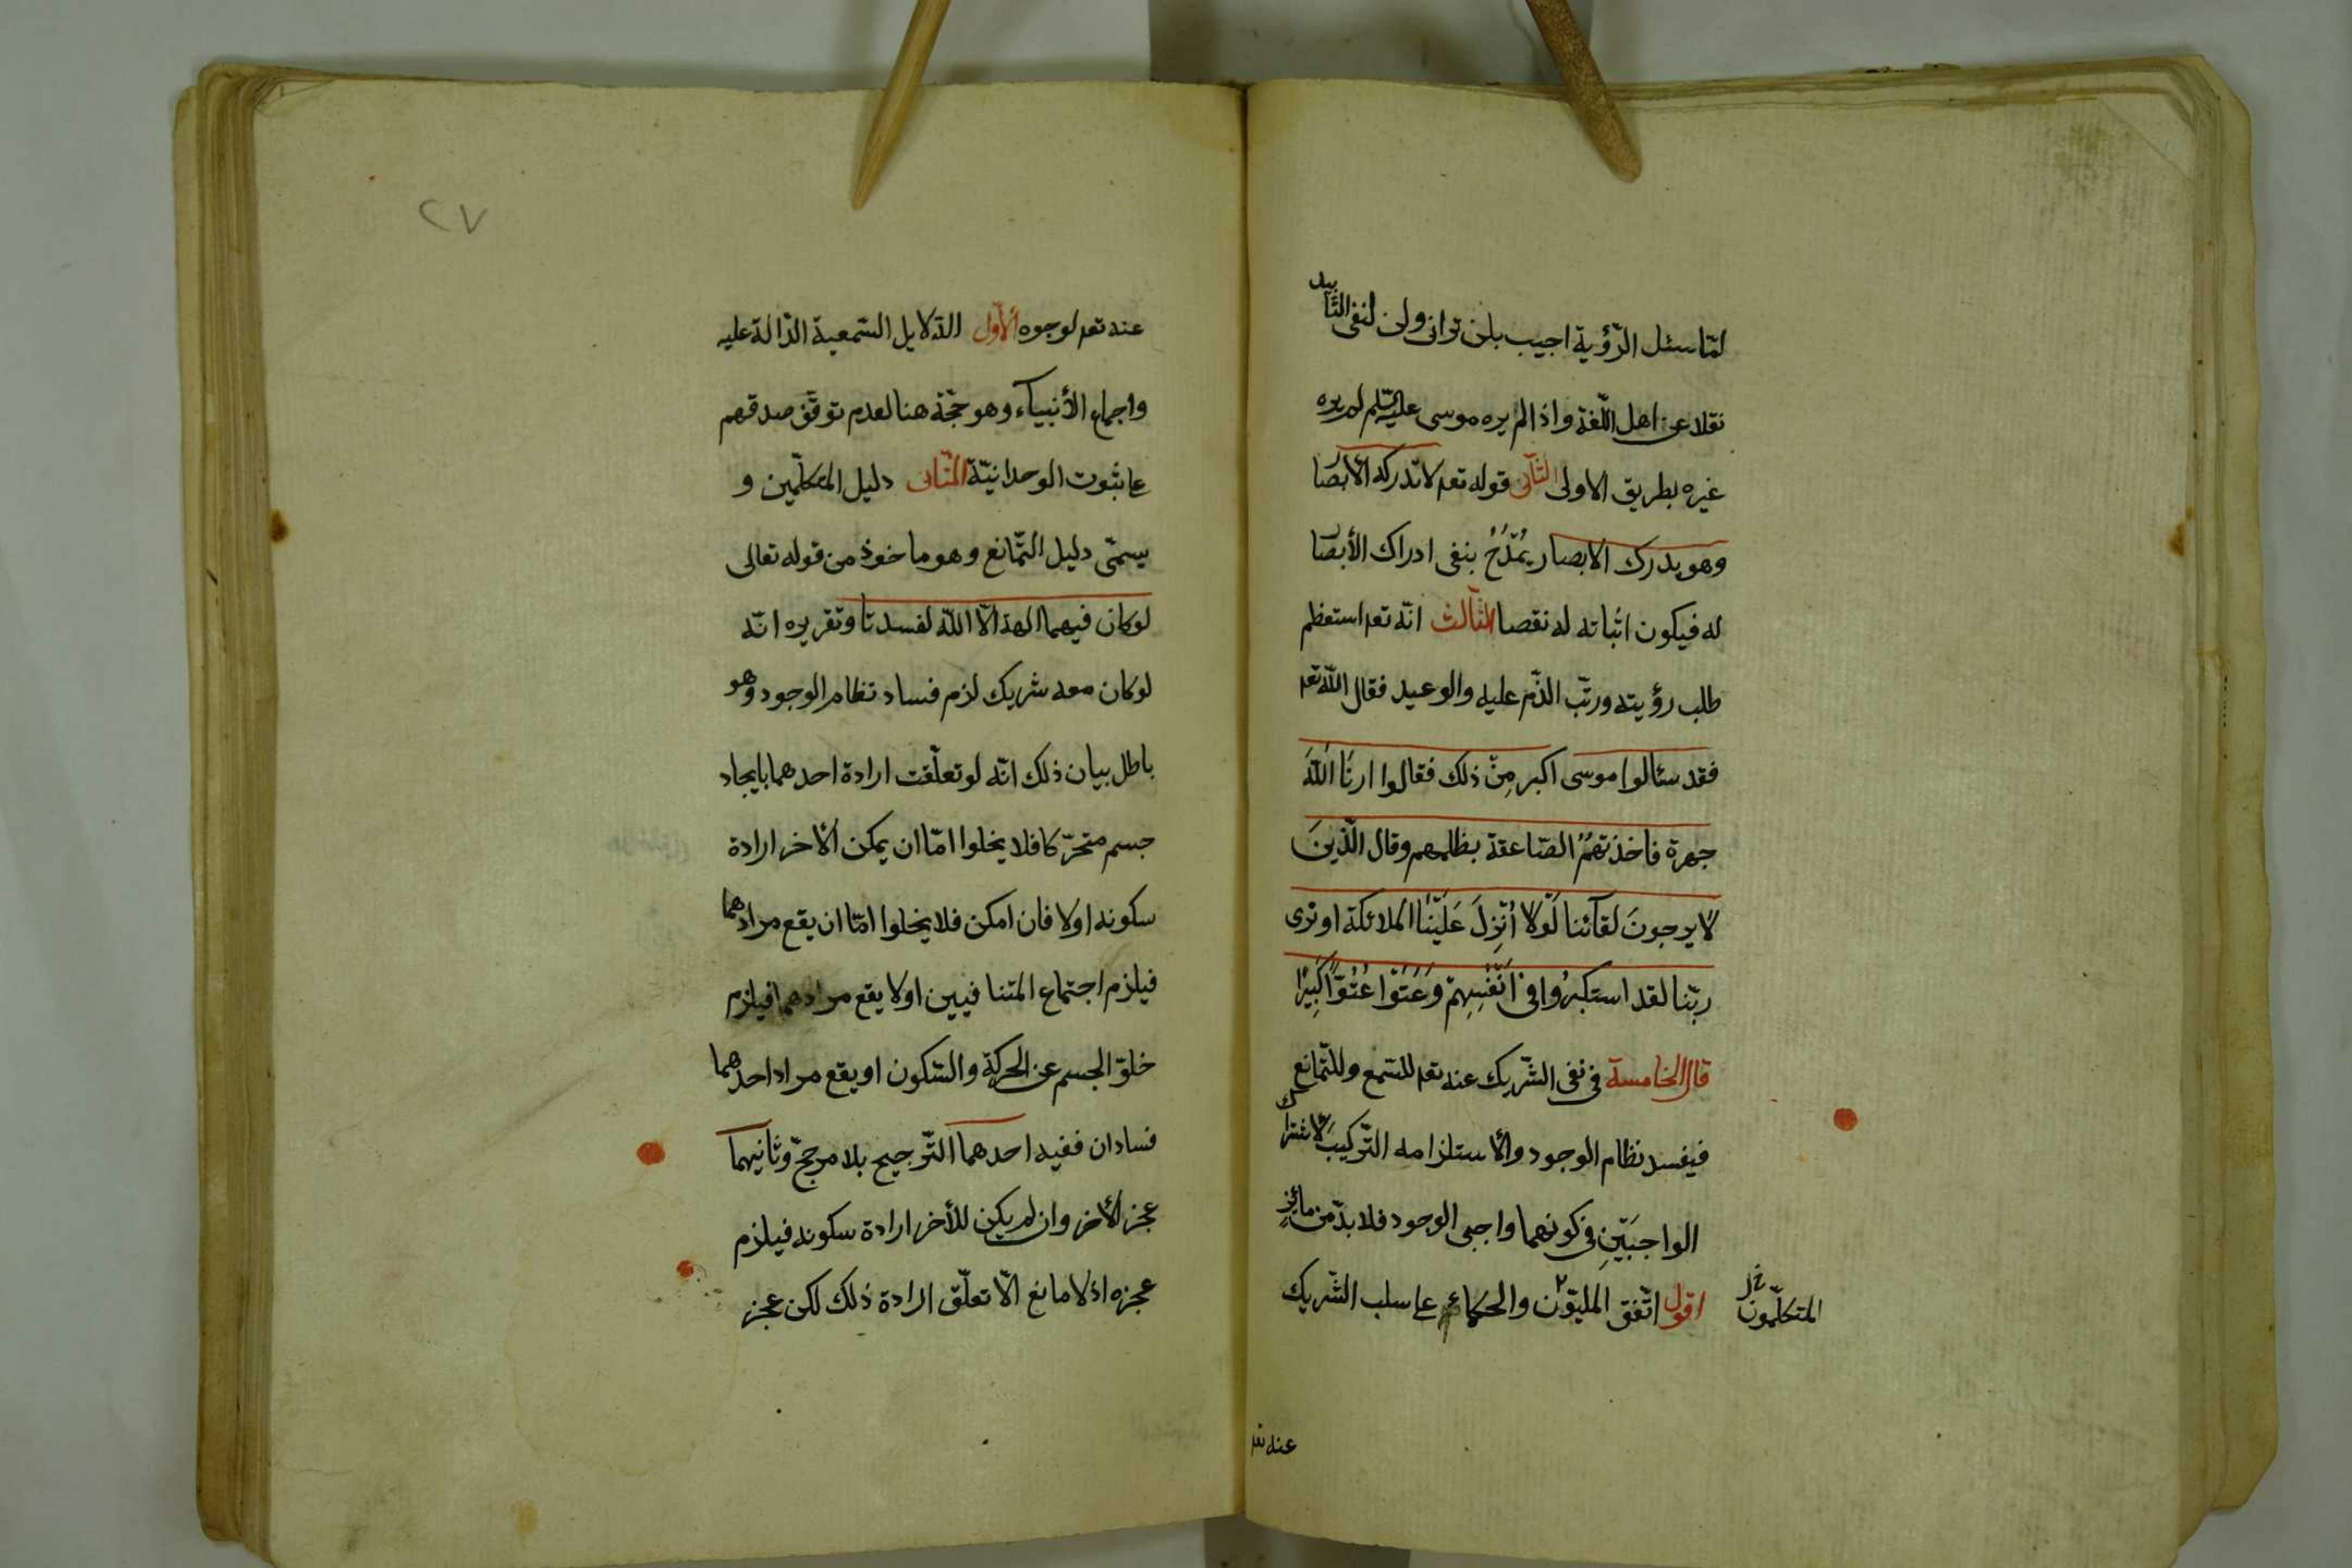 لمّا سئل الرّؤية اجيب بلن تراني ولن لنفي التّأبيد
نقلا عن اهل اللّغة واذا لم يره موسى عليه السّلم لم يره
غيره بطريق الاولى الثّاني قوله تعا لا تدركه الابصا
وهو يدرك الابصار يُمْدَحُ بنفي ادراك الأبصا
له فيكون اثباته له نقصا الثّالث انّه تعا استعظم
طلب رؤيته ورتّب الذّم عليه والوعيد فقال اللّه تعا
فقد سئالوا موسى اكبر مِنْ ذلك فقالوا ارنَا اللّهَ
جهرة فاخذتهُمُ الصّاعقة بظلمهم وقال الّذينَ
لا يرجونَ لقآئنا لَوْلا اُنْزِلَ عَلَيْنَا الملائكة او نرى
ربّنا لقد استكبرُوا في اَنْفُسِهِمْ وَعَتَوْا عُتُوّاً كَبِيرًا
قال الخامسة في نفي الشّريك عنه تعا للسّمع وللتّمانع
فيفسد نظام الوجود والاستلزامه التّركيب لاشتراك
الواجبَيْنِ في كونهما واجبي الوجود فلا بدّ من مائزٍ
اقول اتّفق المليّون والحكماء عا سلب الشّريك
المتكلّمون خل
عنه تعا
٢٧
عنه تعا لوجوه الأوّل الدّلايل السّمعية الدّالة عليه
واجماع الأنبيآء وهو حجّة هنا لعدم توقّف صدقهم
عا ثبوت الوحدانيّة الثّاني دليل المتكلّمين و
يسمّى دليل التّمانع وهو ماخوذ من قوله تعالى
لو كان فيهما الهة الّا اللّه لفسدتا وتقريره انّه
لو كان معه شريك لزم فساد نظام الوجود وهو
باطل بيان ذلك انّه لو تعلّقت ارادة احدهما بايجاد
جسم متحرّكا فلا يخلوا امّا ان يمكن الأخر ارادة
سكونه اولا فان امكن فلا يخلوا امّا ان يقع مرادهما
فيلزم اجتماع المتنافيين او لا يقع مرادهما فيلزم
خلوّ الجسم عن الحركة والسّكون او يقع مراد احدهما
فسادان ففيه احدهما التّرجيح بلا مرجحّ وثانيهما
عجز الأخر وان لم يكن للأخر ارادة سكونه فيلزم
عجزه اذ لا مانع الّا تعلّق ارادة ذلك لكن عجز